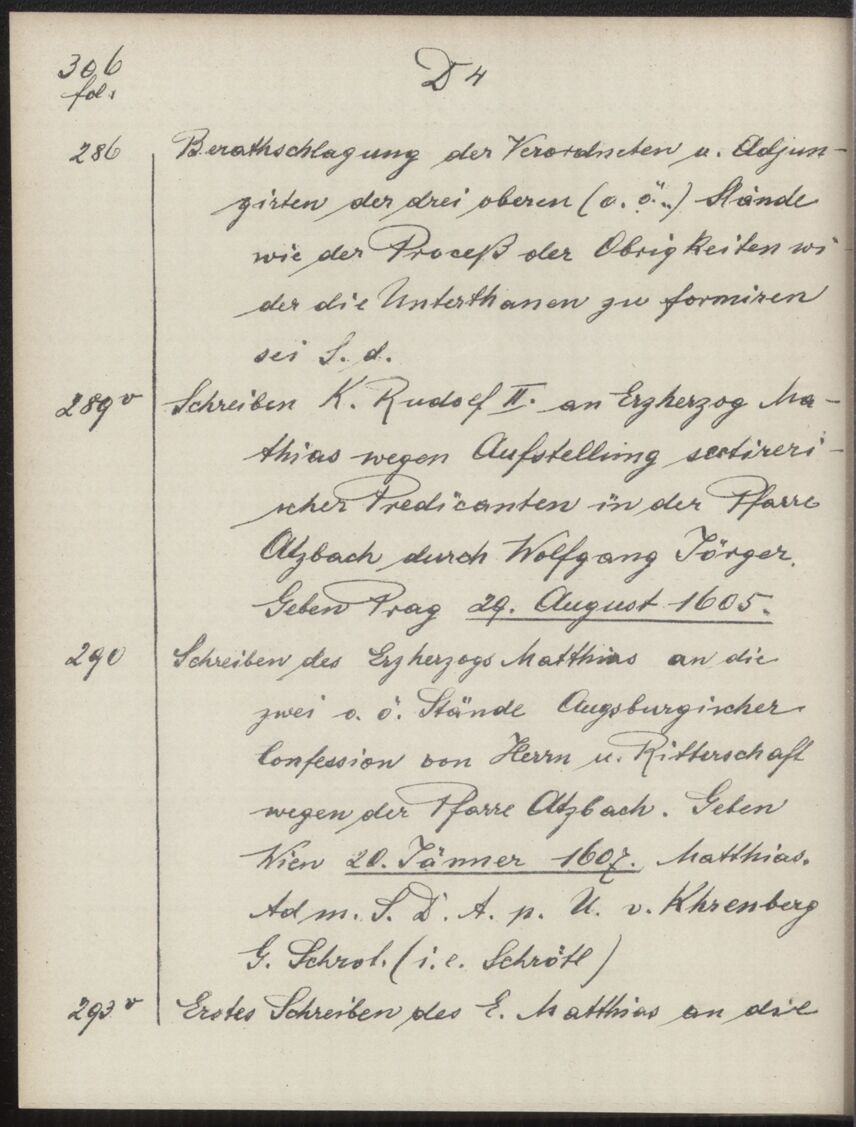 306 D 4
fol.
286 Berathschlagung der Verordneten u. Adjun-
girten der drei oberen (o. ö..) Stände
wie der Proceß der Obrigkeiten wi
der die Unterthanen zu formiren
sei S. d.
289 v Schreiben K. Rudolf II. an Erzherzog Ma-
thias wegen Aufstellung sectireri-
scher Predicanten in der Pfarre
Atzbach durch Wolfgang Jörger.
Geben Prag 29. August 1605.
290 Schreiben des Erzherzogs Matthias an die
zwei o. ö. Stände Augsburgischer
Confession von Herrn u. Ritterschaft
wegen der Pfarre Atzbach. Geben
Wien 20. Jänner 1607. Matthias.
Ad m. S. D. A. p. U. v. Khrenberg
G. Schrot. (i. e. Schrötl)
293 v Erstes Schreiben des E. Matthias an die